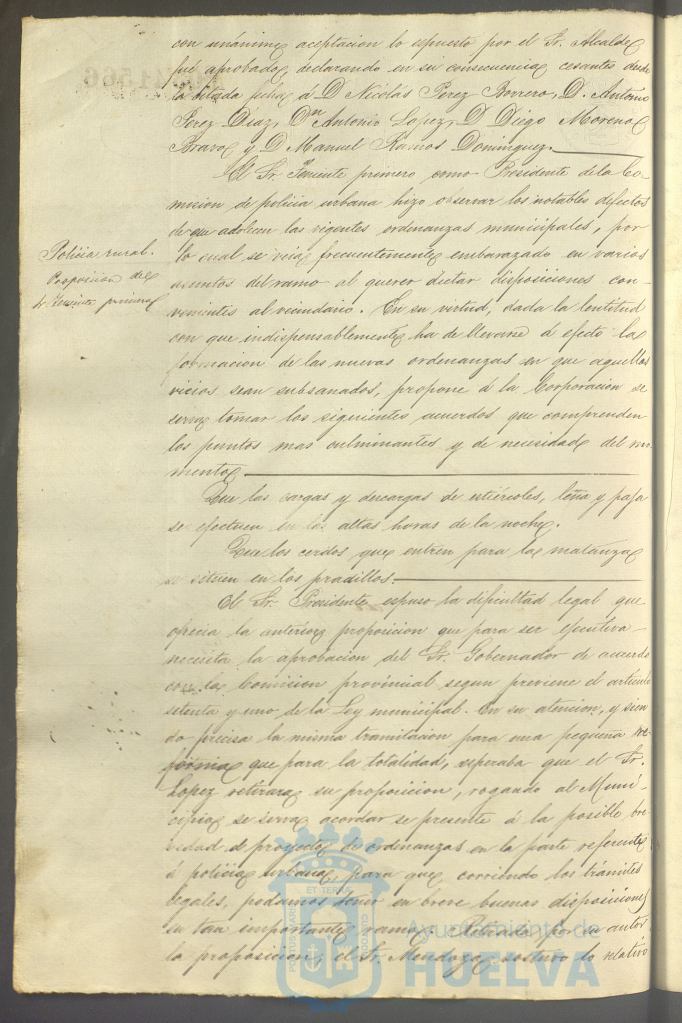 con unánime aceptacion lo espuesto por el Sr. Alcalde
fué aprobado, declarando en su consecuencia cesantes desde
la citada fecha á D Nicolás Perez Borrero, D. Antonio
Perez Diaz, Dn Antonio Lopez, D Diego Moreno
Bravo y D Manuel Ramos Dominguez.
El Sr. Teniente primero como Presidente de la Co-
mision de policia urbana hizo observar los notables defectos
de que adolecen las vigentes ordenanzas municipales, por
Policia rural.
Proposicion del
Sr Teniente primero
lo cual se veia frecuentemente embarazado en varios
asuntos del ramo al querer dictar disposiciones con-
venientes al vecindario. En su virtud, dada la lentitud
con que indispensablemente ha de llevarse á efecto la
formacion de las nuevas ordenanzas en que aquellos
vicios sean subsanados, propone á la Corporacion se
sirva tomar los siguientes acuerdos que comprenden
los puntos mas culminantes y de necesidad del mo-
mento
Que las cargas y descargas de estiércoles, leña y paja
se efectuen en las altas horas de la noche.
Que los cerdos que entren para la matanza
se situen en los pradillos.
El Sr. Presidente espuso la dificultad legal que
ofrecia la anterior proposicion que para ser ejecutiva
necesita la aprobacion del Sr. Gobernador de acuerdo
con la Comision provincial segun previene el artículo
setenta y uno de la Ley municipal. En su atencion, y sien
do precisa la misma tramitacion para una pequeña re-
forma que para la totalidad, esperaba que el Sr.
Lopez retirara su proposicion, rogando al Muni-
cipio se sirva acordar se presente á la posible bre
vedad el proyecto de ordenanzas en la parte referente
á policia urbana, para que corriendo los trámites
legales, podamos tener en breve buenas disposiciones
en tan importante ramo. Retirada por su autor
la proposicion, el Sr. Mendoza, sostuvo lo relativo
PORTUS MARIS
ET TERRAE
CUSTODIA
Ayuntamiento de
HUELVA